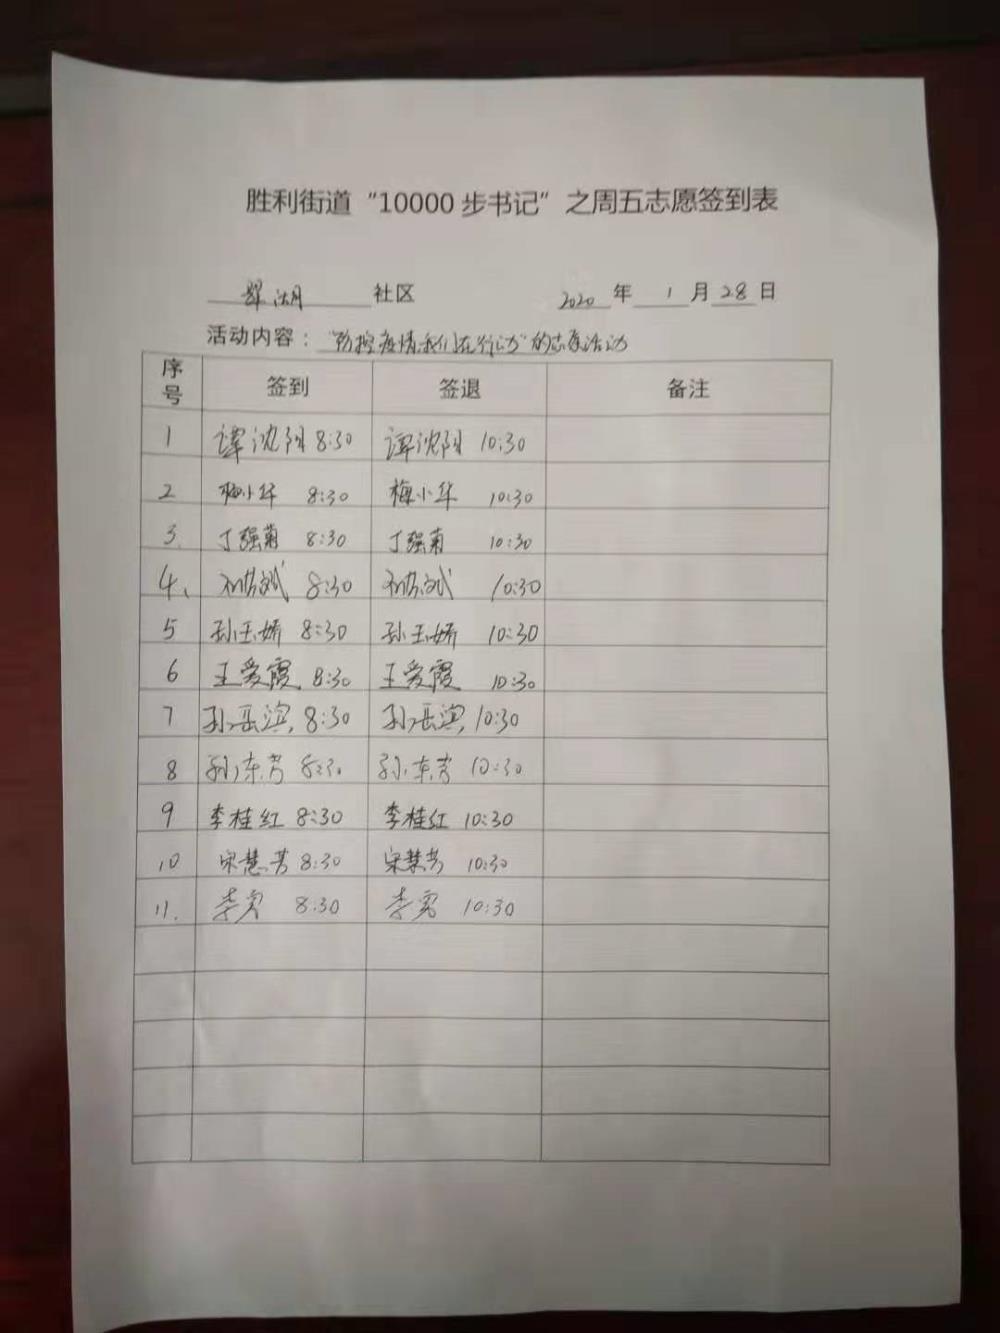 胜利街道“10000步书记”之周五志愿签到表
翠湖 社区 2020 年 1 月 28 日
活动内容：“防控疫情我们在行动”的志愿活动
序号 签到 签退 备注
1 谭沈阳 8:30 谭沈阳 10:30
2 梅小华 8:30 梅小华 10:30
3. 丁强菊 8:30 丁强菊 10:30
4、 8:30 10:30
5 孙玉娇 8:30 孙玉娇 10:30
6 王爱霞 8:30 王爱霞 10:30
7 孙岳滨 8:30 孙岳滨 10:30
8 孙东芳 8:30 孙东芳 10:30
9 李桂红 8:30 李桂红 10:30
10 宋慧芳 8:30 宋慧芳 10:30
11. 李实 8:30 李实 10:30